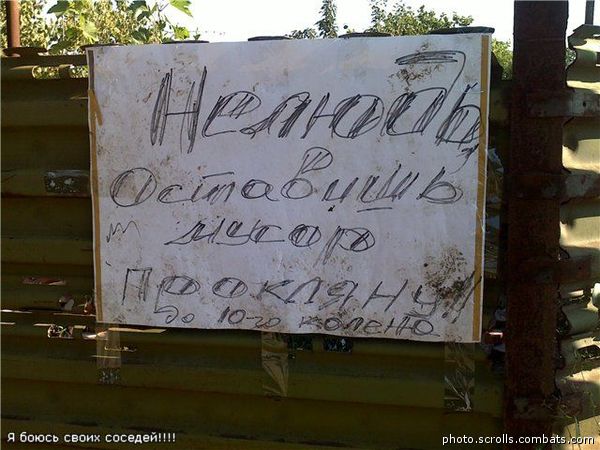 Нелюдь
Оставишь
мусор
Прокляну!!
До 10-го колено
Я боюсь своих соседей!!!!
photo.scrolls.combats.com